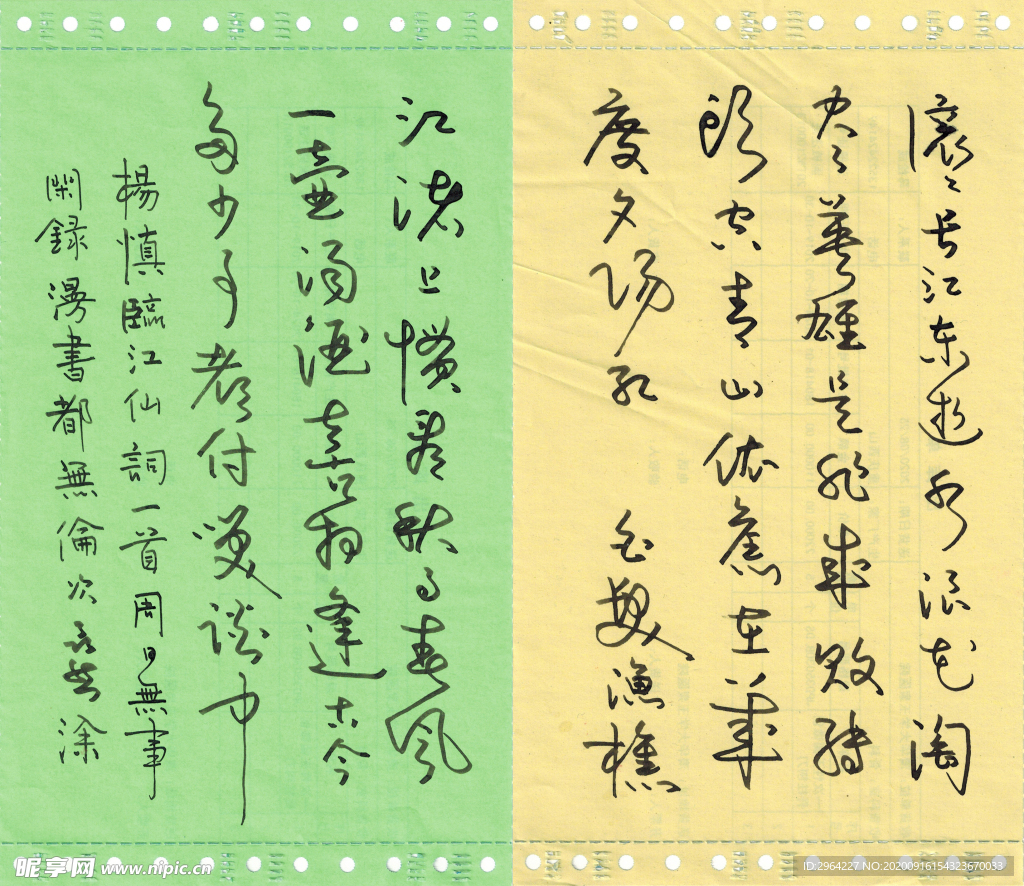 滚滚长江东逝水浪花淘
尽英雄是非成败转
頭空青山依舊在幾
度夕阳红 白髮渔樵
江渚上惯看秋月春风
一壶浊酒喜相逢古今
多少事都付笑谈中
楊慎臨江仙詞一首周日無事
閑録漫書都無倫次 涂
昵享网 www.nipic.cn
ID:2964227 NO:20200916154323670033